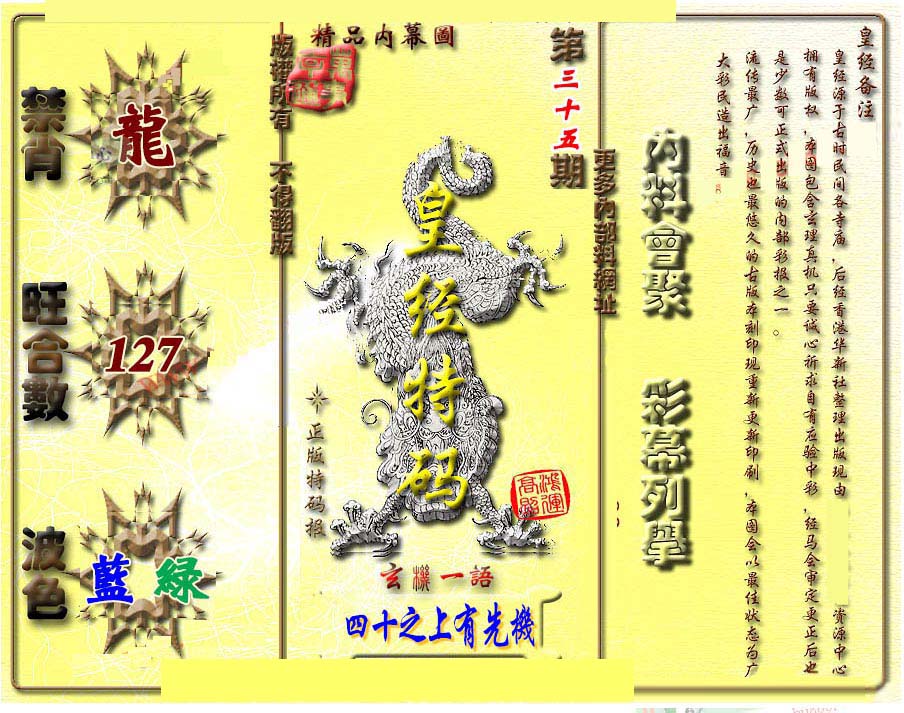 精品内幕圖
第三十五期
版權所有 不得翻版
更多内部料網址
禁肖
龍
旺合數
127
波色
藍 緑
皇经特码
正版特码报
鴻運高照
玄機一語
四十之上有先機
内料會聚
彩幕列舉
皇经备注
皇经源于古时民间各寺庙，后经香港华新社整理出版现由 资源中心
拥有版权，本图包含玄理真机只要诚心祈求自有应验中彩，经马会审定更正后也
是少数可正式出版的内部彩报之一。
流传最广，历史也最悠久的古版本刻印现重新更新印刷，本图会以最佳状态为广
大彩民造出福音。